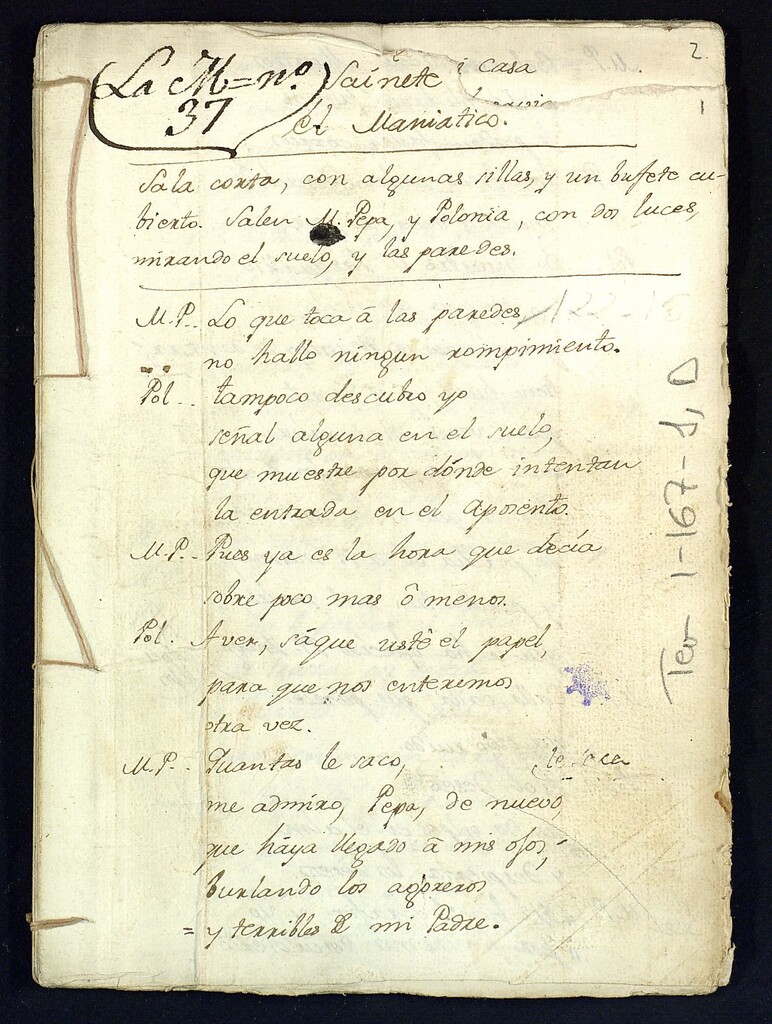 2
1
La M = nº
37
Sainete casa
el Maniatico.
Sala corta, con algunas sillas, y un bufete cu-
bierto. Salen M. Pepa, y Polonia, con dos luces,
mirando el suelo, y las paredes.
M.P.. Lo que toca â las paredes,
no hallo ningun rompimiento.
Pol.. tampoco descubro yo
señal alguna en el suelo,
que muestre por dónde intentan
la entrada en el Aposento.
M.P.. Pues ya es la hora que decía
sobre poco mas ô menos.
Pol. Aver, sáque usté el papel,
para que nos enteremos
otra vez.
M.P.. Quantas le saco, le saca
me admiro, Pepa, de nuevo,
que háya llegado â mis ojos,
burlando los
= y terribles de mi Padre.
Tea 1-167-1, D